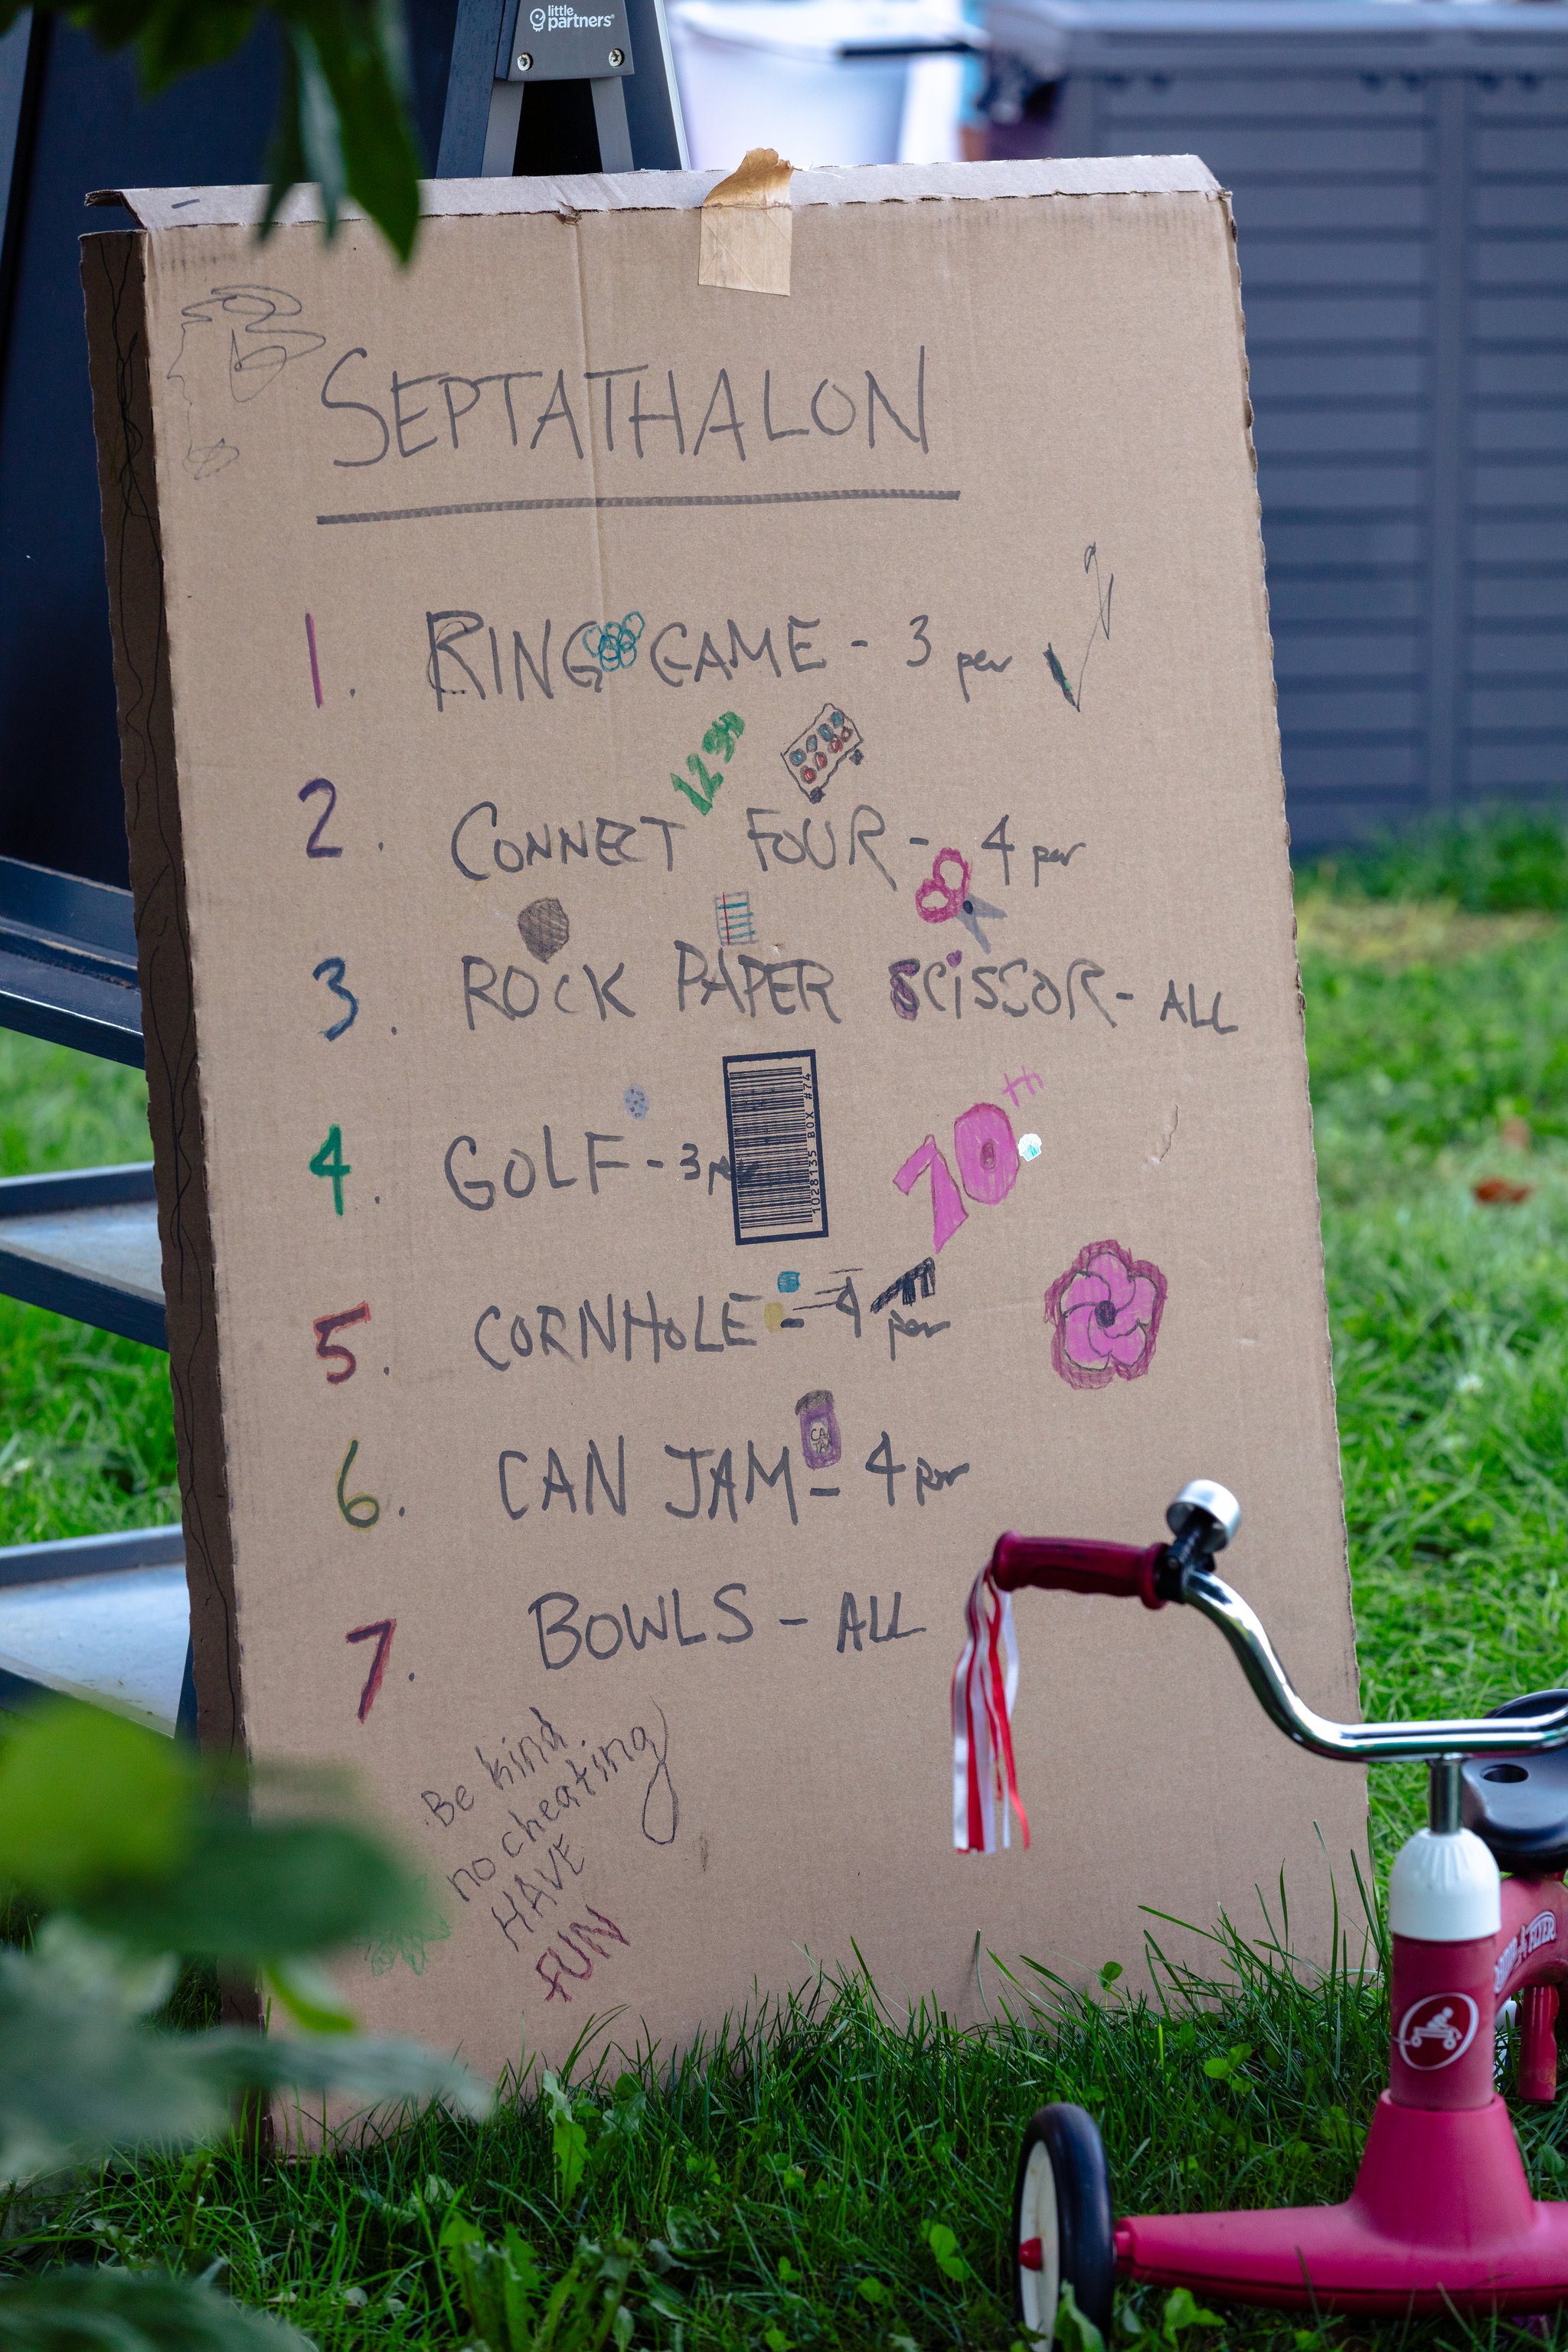 little
partners®
SEPTATHALON
1. RING GAME - 3 per
1234
2. CONNECT FOUR - 4 per
3. ROCK PAPER SCISSOR - ALL
4. GOLF - 3 per
1028135 BOX #74
5. CORNHOLE - 4 per
CAN
JAM
6. CAN JAM - 4 per
7. BOWLS - ALL
Be kind
no cheating
HAVE
FUN